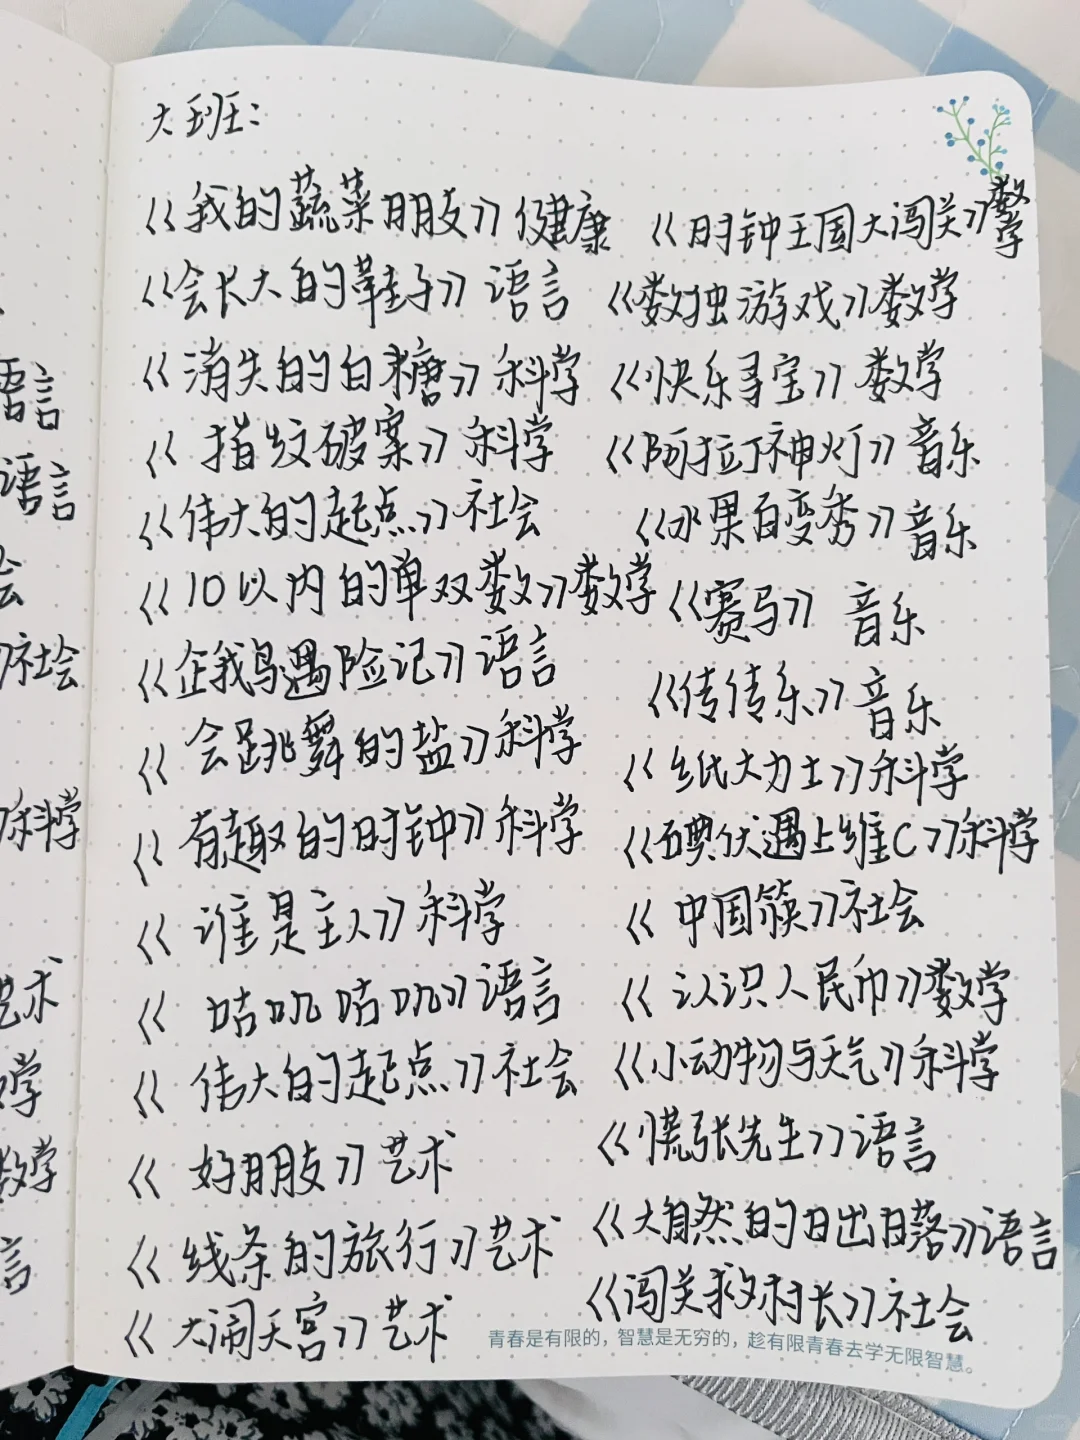 大班：
《我的蔬菜朋友》健康
《会长大的鞋子》语言
《消失的白糖》科学
《指纹破案》科学
《伟大的起点》社会
《10以内的单双数》数学
《企我鸟遇险记》语言
《会跳舞的盐》科学
《有趣的时钟》科学
《谁是主人》科学
《咕叽咕叽》语言
《伟大的起点》社会
《好朋友》艺术
《线条的旅行》艺术
《大闹天宫》艺术
《时钟王国大闯关》数学
《数独游戏》数学
《快乐寻宝》数学
《阿拉丁神灯》音乐
《水果百变秀》音乐
《赛马》音乐
《传传乐》音乐
《纸大力士》科学
《碘伏遇上维C》科学
《中国筷》社会
《认识人民币》数学
《小动物与天气》科学
《慌张先生》语言
《大自然的日出日落》语言
《闯关救村长》社会
青春是有限的，智慧是无穷的，趁有限青春去学无限智慧。
语言
语言
会
》社会
》科学
艺术
学
数学
言